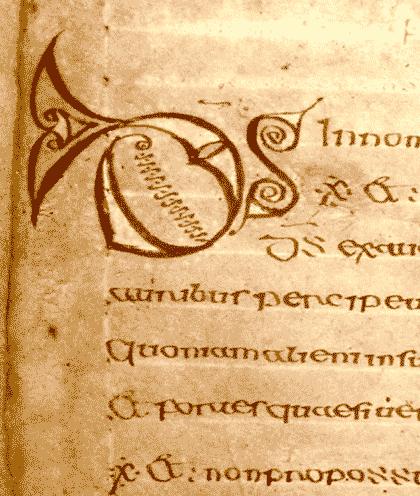 DS Innom
&
DS exau
auribus percipe u
Quoniam alieni insu
& fortes quaesier
& non propo